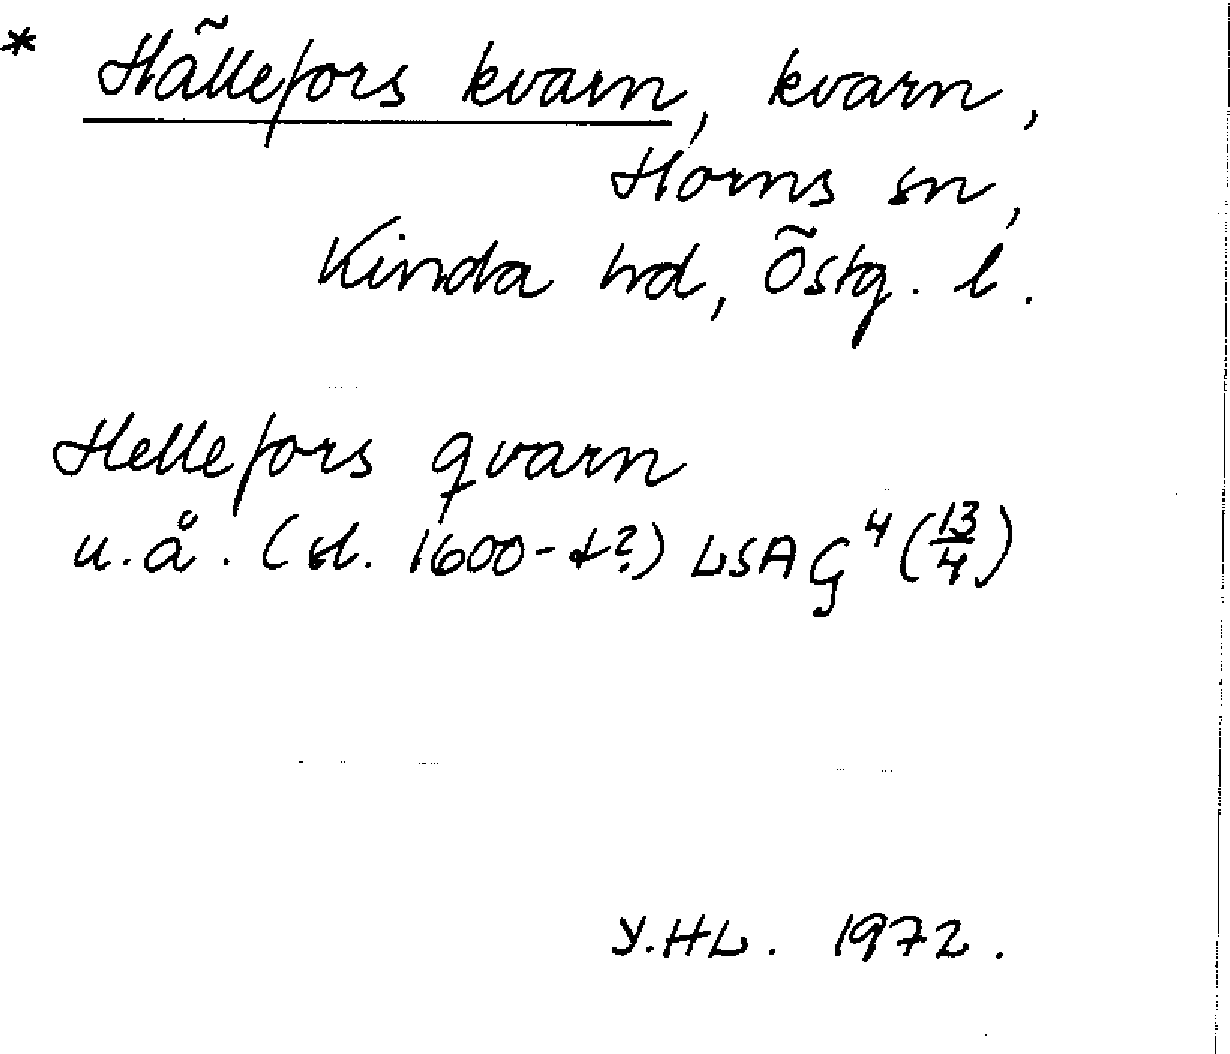 * Hällefors kvarn, kvarn,
Horns sn,
Kinda hd, Östg. l.
Hellefors qvarn
u.å. (sl. 1600-t?) LSA G⁴ (13/4)
Y.HL. 1972.